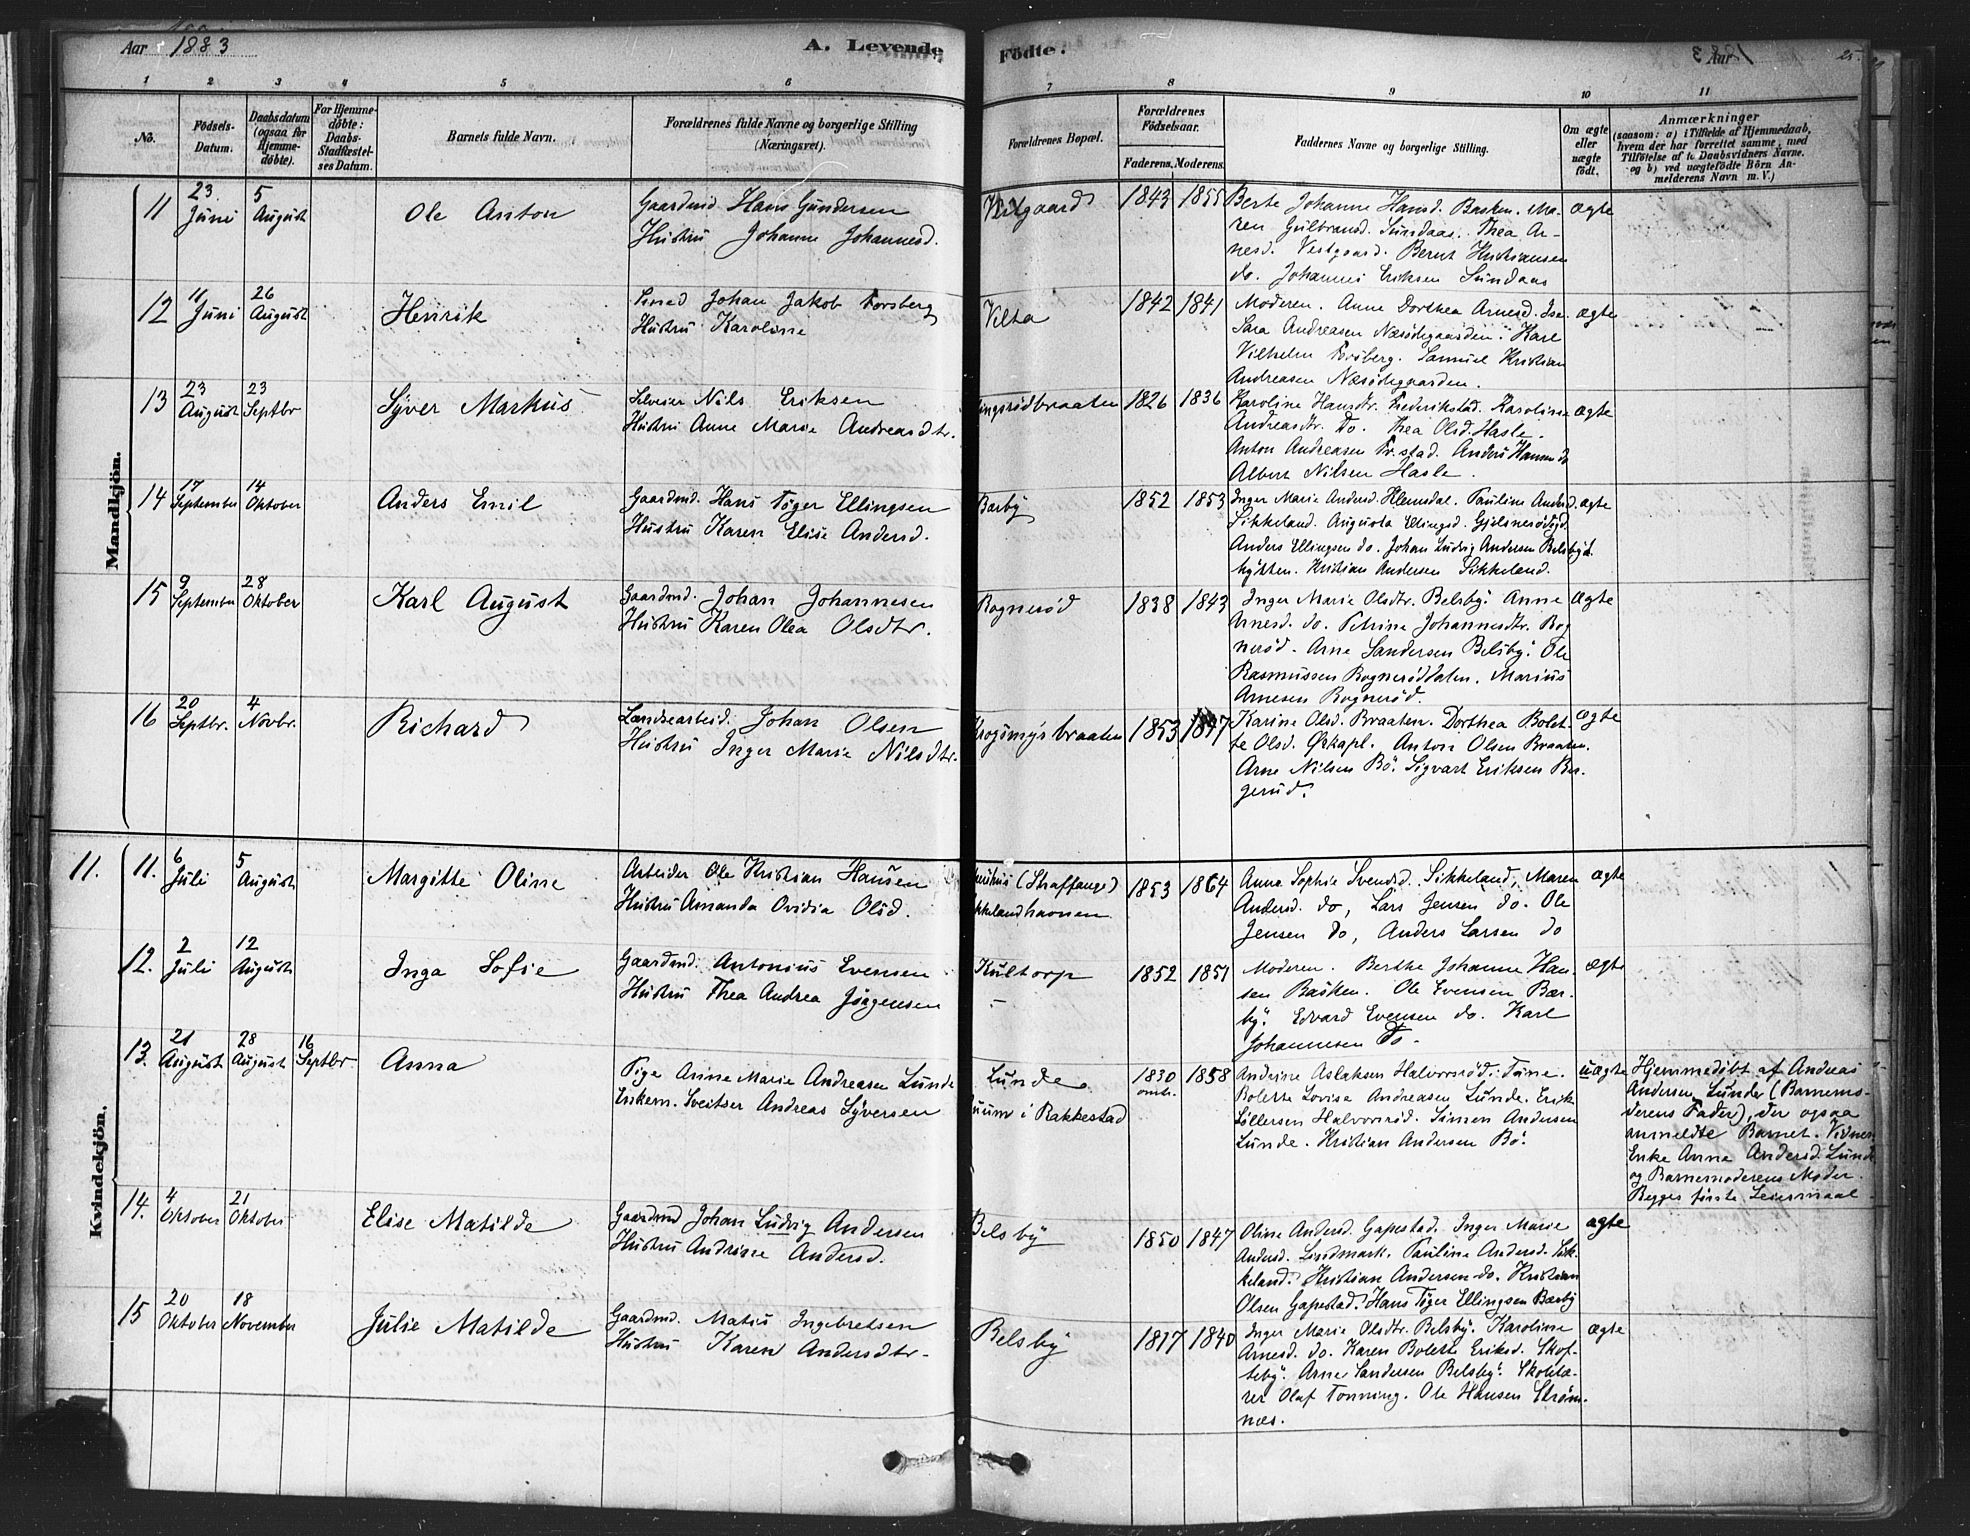 Aar 1883
A. Levende
Födte.
Aar 1883
25.
1
2
3
4
5
6
7
8
9
10
11
No.
Födsels-
Datum.
Daabsdatum
(ogsaa for
Hjemme-
döbte).
For Hjemme-
döbte:
Daabs-
Stadfæstel-
ses Datum.
Barnets fulde Navn.
Forældrenes fulde Navne og borgerlige Stilling
(Næringsvei).
Forældrenes Bopæl.
Forældrenes
Födselsaar.
Faderens.
Moderens.
Faddernes Navne og borgerlige Stilling.
Om ægte
eller
uægte
födt.
Anmærkninger
(saasom: a) i Tilfælde af Hjemmedaab,
hvem der har forrettet samme, med
Tilföielse af to Daabsvidners Navne.
og b) ved uægtefödte Börn An-
melderens Navn m. V.)
Mandkjön.
11
23.
Juni
5
August
Ole Anton
Gaardmd Hans Gundersen
Hustru Johanne Johannesd.
1843
1855
Berte Johanne Hansd. Basken. Ma-
ren Gulbransd. Sundaas. Thea Ar-
nesd. Vestgaard. Bernt Kristiansen
do. Johannes Eriksen Sundaas
ægte
12
11
Juni
26
August
Henrik
Smed Johan Jakob Forsberg
Hustru Karoline
Vilta
1842
1841
Moderen. Anne Dorthea Arnesd.
Lara Andreasen Næsödegaarden. Karl
Vilhelm Forsberg. Samuel Kristian
Andreasen Næsödegaarden.
ægte
13
23
August
23
Septbr
Syver Markus
Nils Eriksen
Hustru Anne Marie Andreasdtr.
1826
1836
Karoline Hansdtr. Frederikstad. Karoline
Andreasdtr. do. Thea Olsd. Hasle.
Anton Andreasen Fr.stad. Anders Hansen do
Albert Nilsen Hasle.
ægte
14
17
September
14
Oktober
Anders Emil
Gaardmd. Hans Töger Ellingsen
Hustru Karen Elise Andersd.
Bærby
1852
1853
Inger Marie Andersd. Hlemdal. Pauline Andersd.
Sikkeland. Augusta Ellingsd.
Anders Ellingsen do. Johan Ludvig Andersen Belsby.
hytten. Kristian Andersen Sikkeland.
ægte
15
9
September
28
Oktober
Karl August
Gaardmd. Johan Johannesen
Hustru Karen Olea Olsdtr.
Rognerød
1838
1843
Inger Marie Olsdtr. Belsby. Anne
Arnesd. do. Petrine Johannesdtr. Rog
nerød. Arne Sandersen Belsby. Ole
Rasmussen Rognerøddalen. Marius
Arnesen Rognerød.
ægte
16
20
Septbr.
4
Novbr.
Richard
Landsearbeid. Johan Olsen
Hustru Inger Marie Nilsdtr.
1853
1847
Karine Olsd. Braaten. Dorthea Bolet-
te Olsd. Ørkapl. Anton Olsen Braaten.
Arne Nilsen Bö. Sigvart Eriksen Ber-
gerud.
ægte
Kvindekjön.
11.
11.
6
Juli
5
August
Margitte Oline
Arbeider Ole Kristian Hansen
Hustru Amanda Ovidia Olsd.
(Straffange)
1853
1864
Anna Sophie Svendsd. Sikkeland, Maren
Andersd. do, Lars Jensen do. Ole
Jensen do, Anders Larsen do
ægte
12.
2
Juli
12
August
Inga Sofie
Gaardmd. Antonius Evensen
Hustru Thea Andrea Jörgensen
Kultorp
1852
1851
Moderen. Berthe Johanne Han-
sen Basken. Ole Evensen Bær-
by. Edvard Evensen do. Karl
Johannesen do.
ægte
13.
21
August
28
August
16
Septbr.
Anna
Pige Anne Marie Andreasen Lunde
Enkem. Sveitser Andreas Syversen
Lunde
i Rakkestad
1830
omtr.
1858
Andrine Aslaksen Halvorsrød. Tune.
Bolette Lovise Andreasen Lunde. Erik
Halvorsrød. Simen Andersen
Lunde. Kristian Andersen Bö.
uægte
Hjemmedöbt af Andreas
Andersen Lunde (Barnemo-
derens Fader), der ogsaa
anmeldte Barnet. Vidner
Enke Anne Andersd. Lunde
og Barnemoderens Moder.
Begges förste Leiermaal.
14.
4
Oktober
21
Oktober
Elise Matilde
Gaardmd Johan Ludvig Andersen
Hustru Andrine Andersd.
Belsby
1850
1847
Oline Andersd. Gapestad. Inger Marie
Andersd. Lindmark. Pauline Andersd. Sik-
keland. Kristian Andersen do. Kristian
Olsen Gapestad. Hans Töger Ellingsen Bærby
ægte
15
20
Oktober
18
November
Julie Matilde
Gaardmd. Matis Ingebretsen
Hustru Karen Andersdtr.
Belsby
1817
1840
Inger Marie Olsdtr. Belsby. Karoline
Arnesd. do. Karen Bolette Eriksd. Skof-
teby. Arne Sandersen Belsby. Skolelæ-
rer Olaf Tonning. Ole Hansen Ström-
næs.
ægte